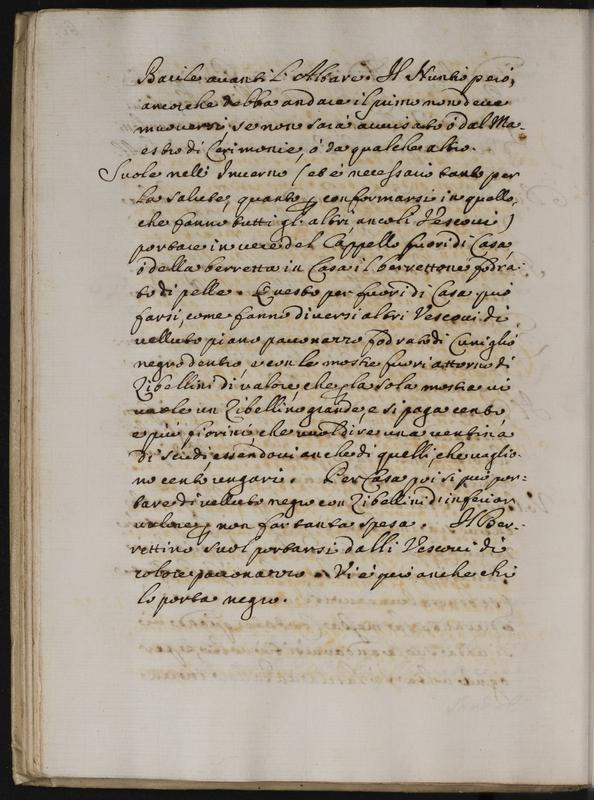 Bacile avanti l'Altare. Il Nuntio però,
ancorche debba andare il primo non deve
muoversi, se non sarà avvisato ò dal Ma-
estro di Cerimonie, ò da qualche altro.
Suole nell' Inverno (et è necessario tanto per
la salute, quanto p conformarsi in quello,
che fanno tutti gl'altri, ancoli Vescovi)
portare in vece del Cappello fuori di Casa,
ò della berretta in Casa il berrettone fodra-
to di pelle. Questo per fuori di Casa può
farsi, come fanno diversi altri Vescovi di
velluto piano paonazzo fodrato di Cuniglio
negro dentro, e con le mostre fuori attorno di
Zibellini di valore, che p la sola mostra vi
vuole un Zibellino grande, e si paga cento
e più fiorini, che vuol dire una ventina
di scudi, essendovi anche di quelli, che vaglio-
no cento ungari. Per Casa poi si può por-
tare di velluto negro con Zibellini di inferior
valore p non far tanta spesa. Il Ber-
rettino suol portarsi dalli Vescovi di
colore paonazzo. Vi è però anche chi
lo porta negro.